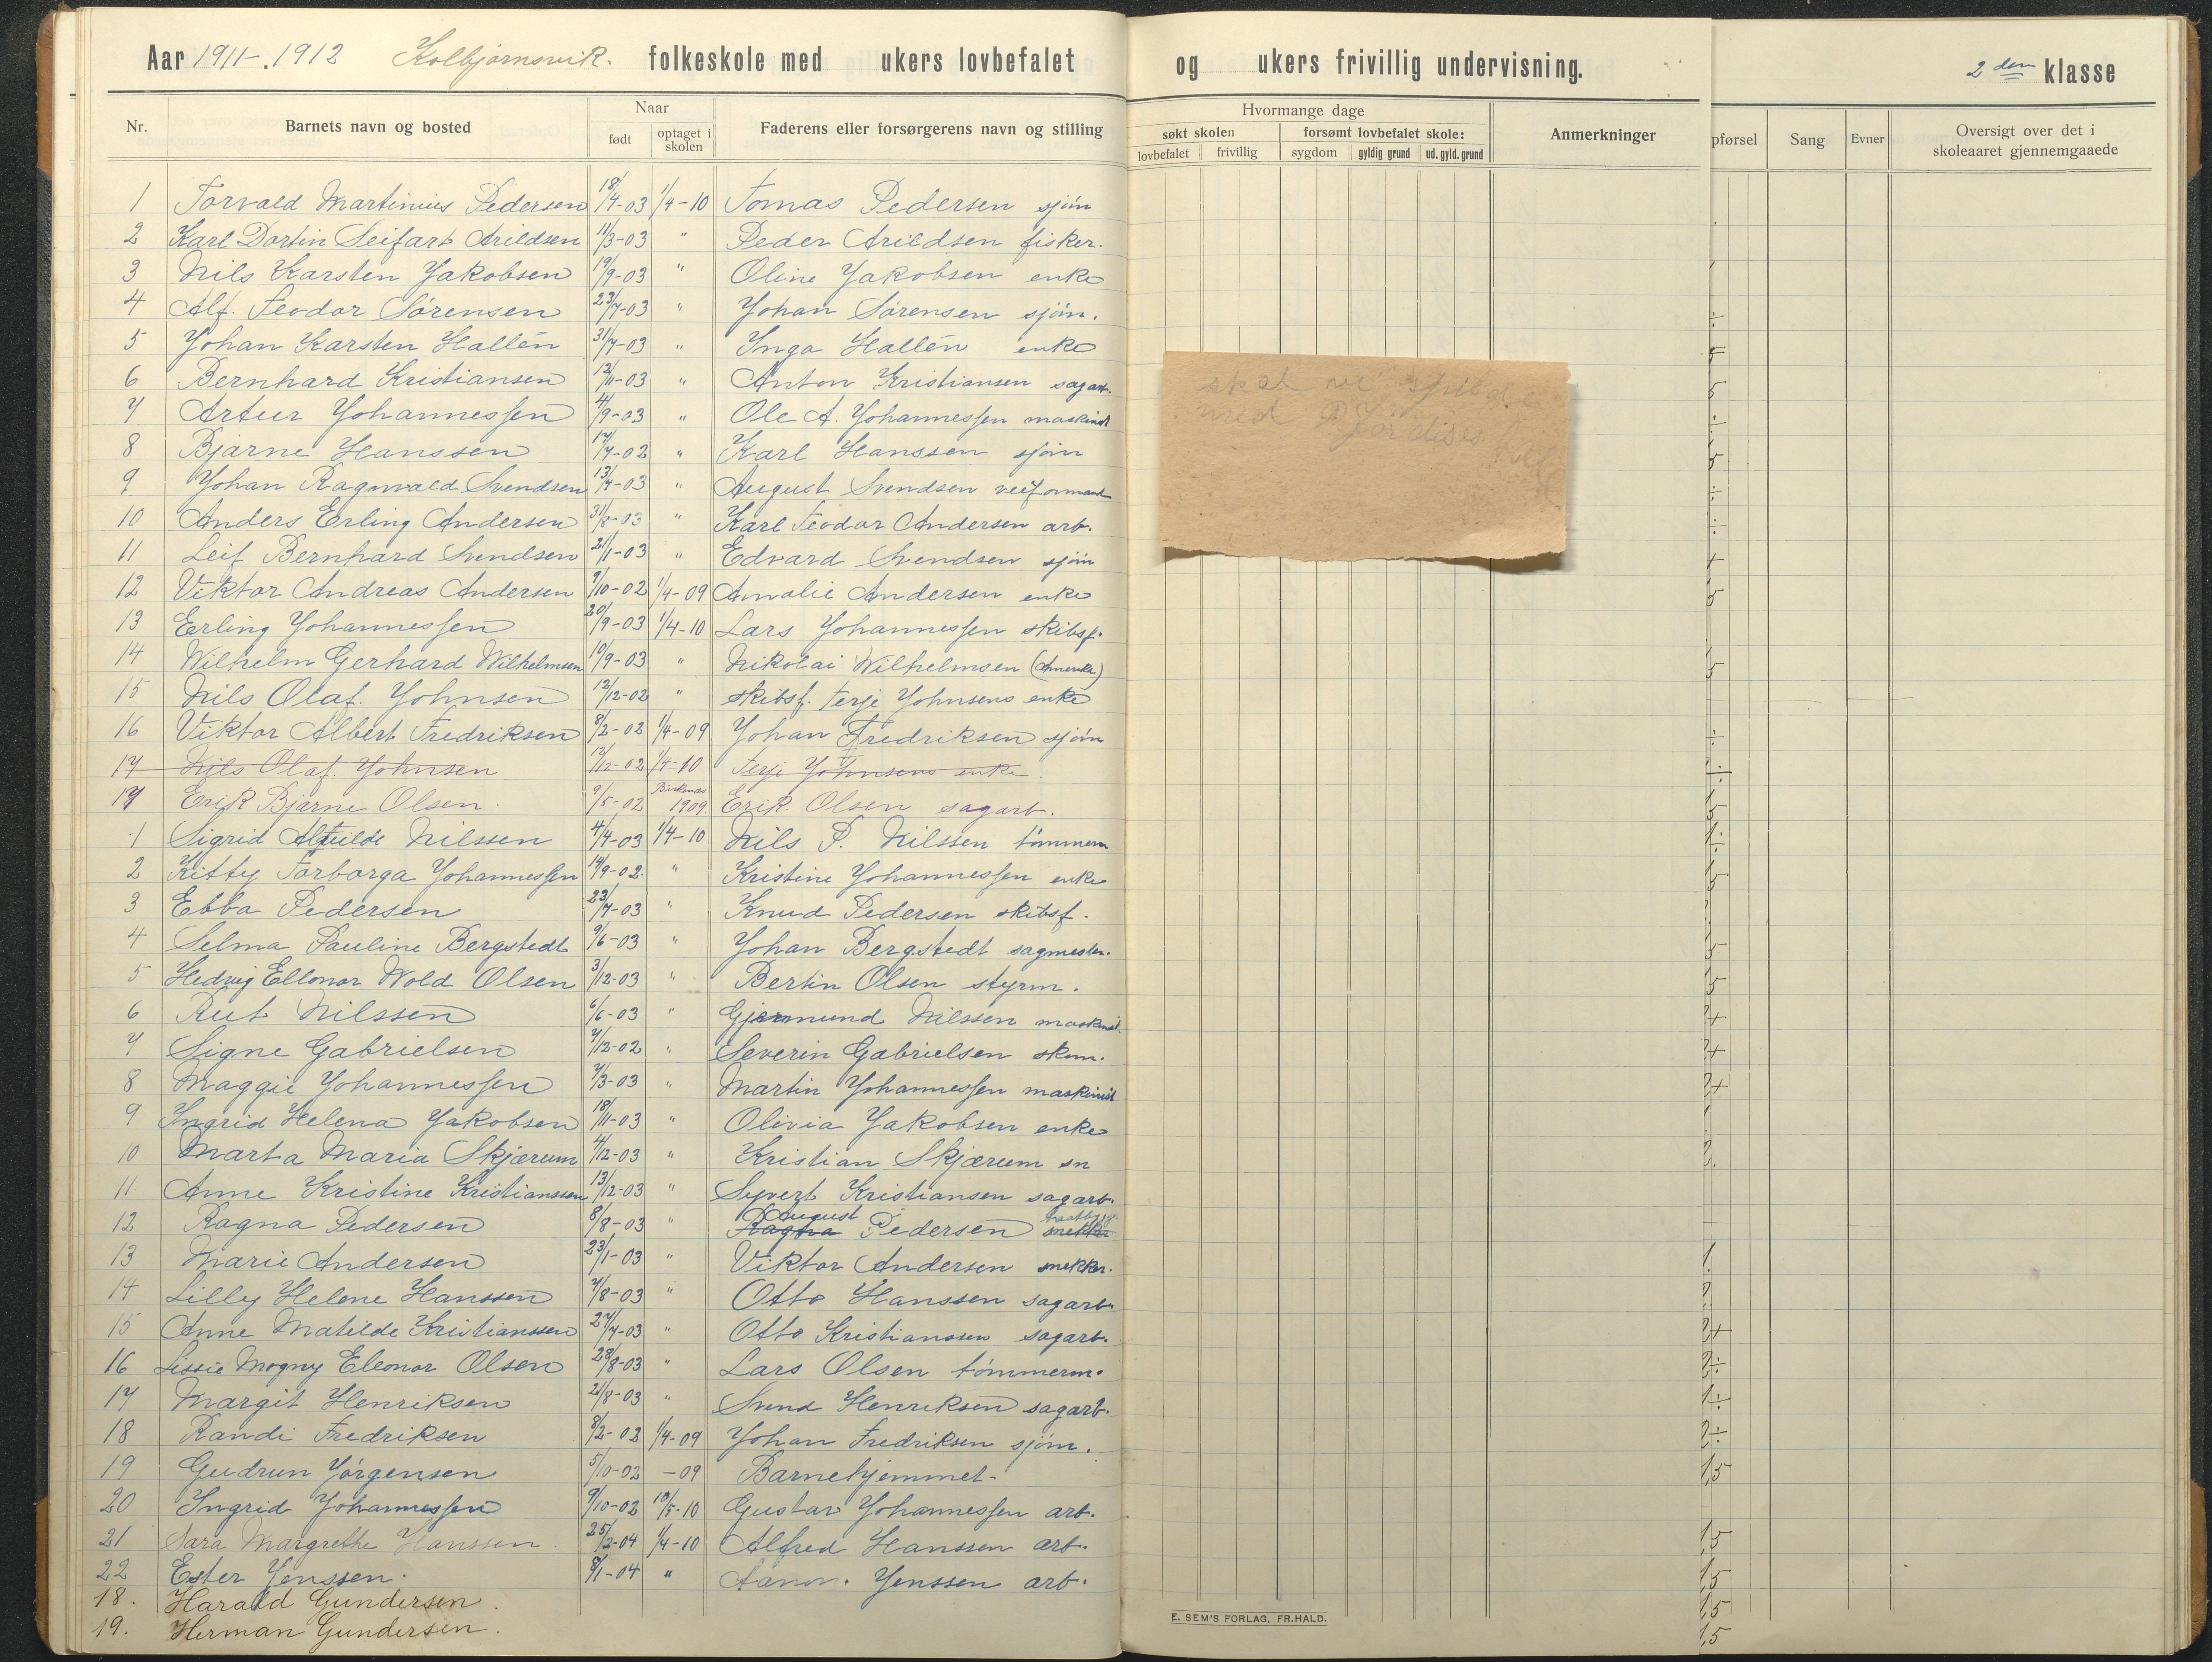 Aar 1911-1912 Kolbjørnsvik. folkeskole med ukers lovbefalet og ukers frivillig undervisning. 2den klasse
Nr. Barnets navn og bosted Naar født optaget i skolen Faderens eller forsørgerens navn og stilling
Hvormange dage søkt skolen lovbefalet frivillig forsømt lovbefalet skole: sygdom gyldig grund ud. gyld. grund Anmerkninger
pførsel Sang Evner Oversigt over det i skoleaaret gjennemgaaede
1 Torvald Martinius Pedersen 18/4-03 1/4-10 Tomas Pedersen sjøm
2 Karl Dortin Seifart Arildsen 11/3-03 " Peder Arildsen fisker.
3 Nils Karsten Jakobsen 19/9-03 " Oline Jakobsen enke
4 Alf. Teodor Sørensen 23/7-03 " Johan Sørensen sjøm.
5 Johan Karsten Hallén 31/7-03 " Inga Hallén enke
6 Bernhard Kristiansen 12/11-03 " Anton Kristiansen sagarb.
7 Artur Johannessen 4/9-03 " Ole A. Johannessen maskinist
8 Bjarne Hanssen 17/7-02 " Karl Hanssen sjøm
9 Johan Ragnvald Svendsen 13/4-03 " August Svendsen veiformand
10 Anders Erling Andersen 31/8-03 " Karl Teodor Andersen arb.
11 Leif Bernhard Svendsen 21/1-03 " Edvard Svendsen sjøm
12 Viktor Andreas Andersen 9/10-02 1/4-09 Amalie Andersen enke
13 Erling Johannessen 20/9-03 1/4-10 Lars Johannessen skibsf.
14 Wilhelm Gerhard Wilhelmsen 10/9-03 " Nikolai Wilhelmsen (Amerika)
15 Nils Olaf. Johnsen 12/12-02 " skibsf. Terje Johnsens enke
16 Viktor Albert Fredriksen 8/2-02 1/4-09 Johan Fredriksen sjøm
17 Nils Olaf. Johnsen 12/12-02 1/4-10 Terje Johnsens enke.
17 Erik Bjarne Olsen. 9/5-02 Birkenes 1909 Erik Olsen sagarb.
1 Sigrid Alfhilde Nilssen 4/4-03 1/4-10 Nils P. Nilssen tømmerm
2 Kitty Torborga Johannessen 14/9-02. " Kristine Johannessen enke
3 Ebba Pedersen 23/7-03 " Knud Pedersen skibsf.
4 Selma Pauline Bergstedt 9/6-03 " Johan Bergstedt sagmester.
5 Hedvig Ellonor Wold Olsen 3/12-03 " Bertin Olsen styrm.
6 Rut Nilssen 6/6-03 " Gjermund Nilssen maskinist.
7 Signe Gabrielsen 7/12-02 " Severin Gabrielsen skom.
8 Maggie Johannessen 7/3-03 " Martin Johannessen maskinist
9 Ingrid Helena Jakobsen 18/11-03 " Olivia Jakobsen enke
10 Marta Maria Skjærum 4/12-03 " Kristian Skjærum sn
11 Anne Kristine Kristianssen 13/12-03 " Syvert Kristiansen sagarb.
12 Ragna Pedersen 8/8-03 " Ragna August Pedersen snekker
13 Marie Andersen 23/1-03 " Viktor Andersen snekker.
14 Lilly Helene Hanssen 7/8-03 " Otto Hanssen sagarb.
15 Anne Matilde Kristianssen 27/7-03 " Otto Kristianssen sagarb.
16 Lissie Mogny Eleonor Olsen 28/8-03 " Lars Olsen tømmerm.
17 Margit Henriksen 21/8-03 " Svend Henriksen sagarb.
18 Randi Fredriksen 8/2-02 1/4-09 Johan Fredriksen sjøm.
19 Gudrun Jørgensen 5/10-02 -09 Barnehjemmet
20 Ingrid Johannessen 9/10-02 10/5-10 Gustav Johannessen arb.
21 Sara Margrethe Hanssen. 25/2-04 1/4-10 Alfred Hanssen arb.
22 Ester Jenssen. 8/1-04 " Aanon. Jenssen arb.
18. Harald Gundersen.
19. Herman Gundersen.
skal vi spille
med Hjørdises
E. SEM'S FORLAG, FR.HALD.